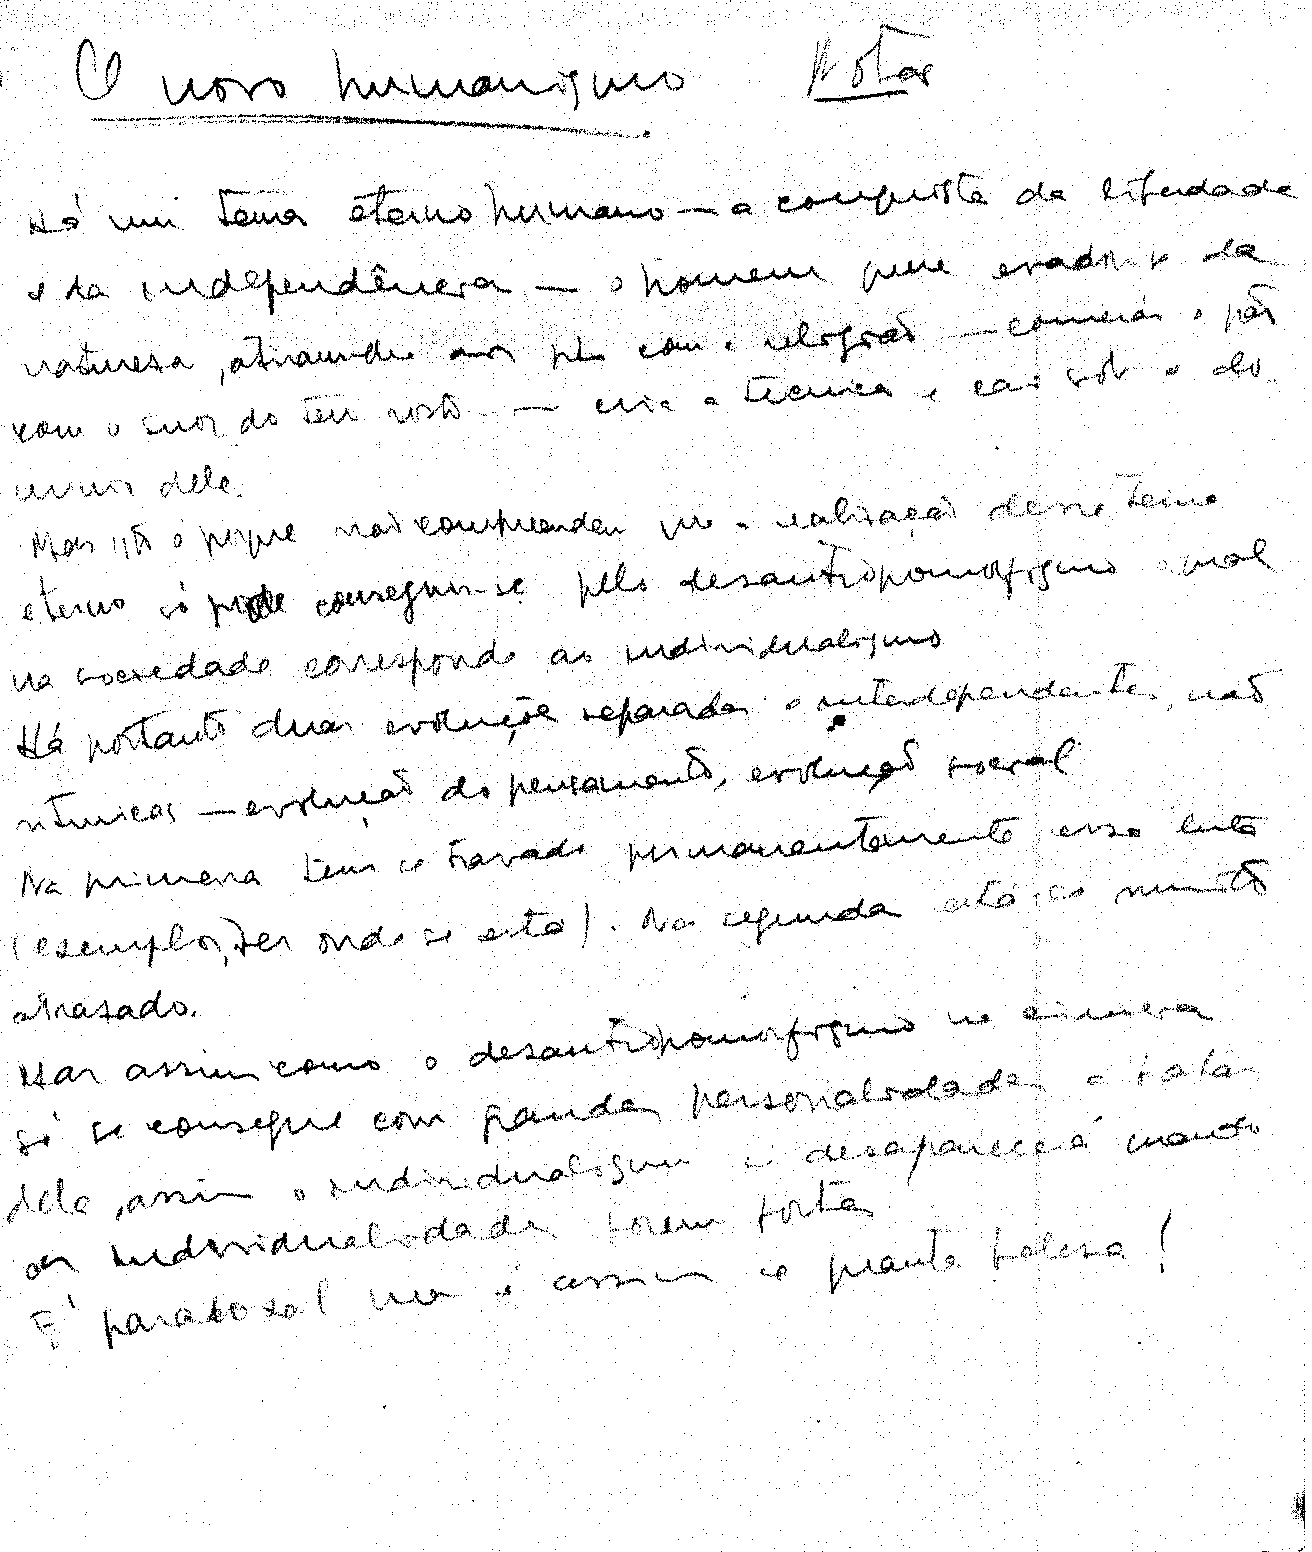 O novo humanismo Notas
Há um tema eterno humano — a conquista da liberdade
e da independência — o homem quer evadir-se da
naturesa, com a religião — comerás o pão
com o suor do teu rosto — cria a técnica e cai sob o do
minio dela.
Mas isto é porque não compreendeu que a realisação desse tema
eterno só pode conseguir-se pelo desantropomorfismo o qual
na sociedade corresponde ao individualismo
Há portanto duas evoluções separadas e interdependentes, não
— evolução do pensamento, evolução social
Na primeira tem-se travado permanentemente essa luta
(exemplos, ver onde se está). Na segunda está-se muito
atrasado.
Mas assim como o desantropomorfismo na ciencia
só se consegue com grandes personalidades
dela, assim o individualismo só desaparecerá quando
as individualidades forem fortes
É paradoxal mas é assim